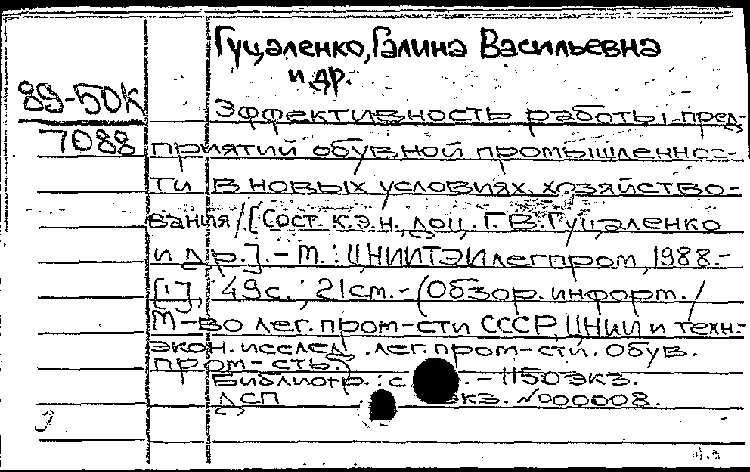 Гуцаленко, Галина Васильевна
и др.
89-50К
Эффективность работы пред-
7088
приятий обувной промышленнос-
ти в новых условиях хозяйство-
вания / [Сост. к.э.н., доц. Г.В. Гуцаленко
и др.]. - М. : ЦНИИТЭИлегпром, 1988.-
[1], 49с. ; 21см. - (Обзор. информ. /
М-во лег. пром-сти СССР, ЦНИИ и техн.-
экон. исслед. лег. пром-сти. Обув.
пром-сть.)
Библиогр.: с. - 1150 экз.
ДСП экз. №000008.